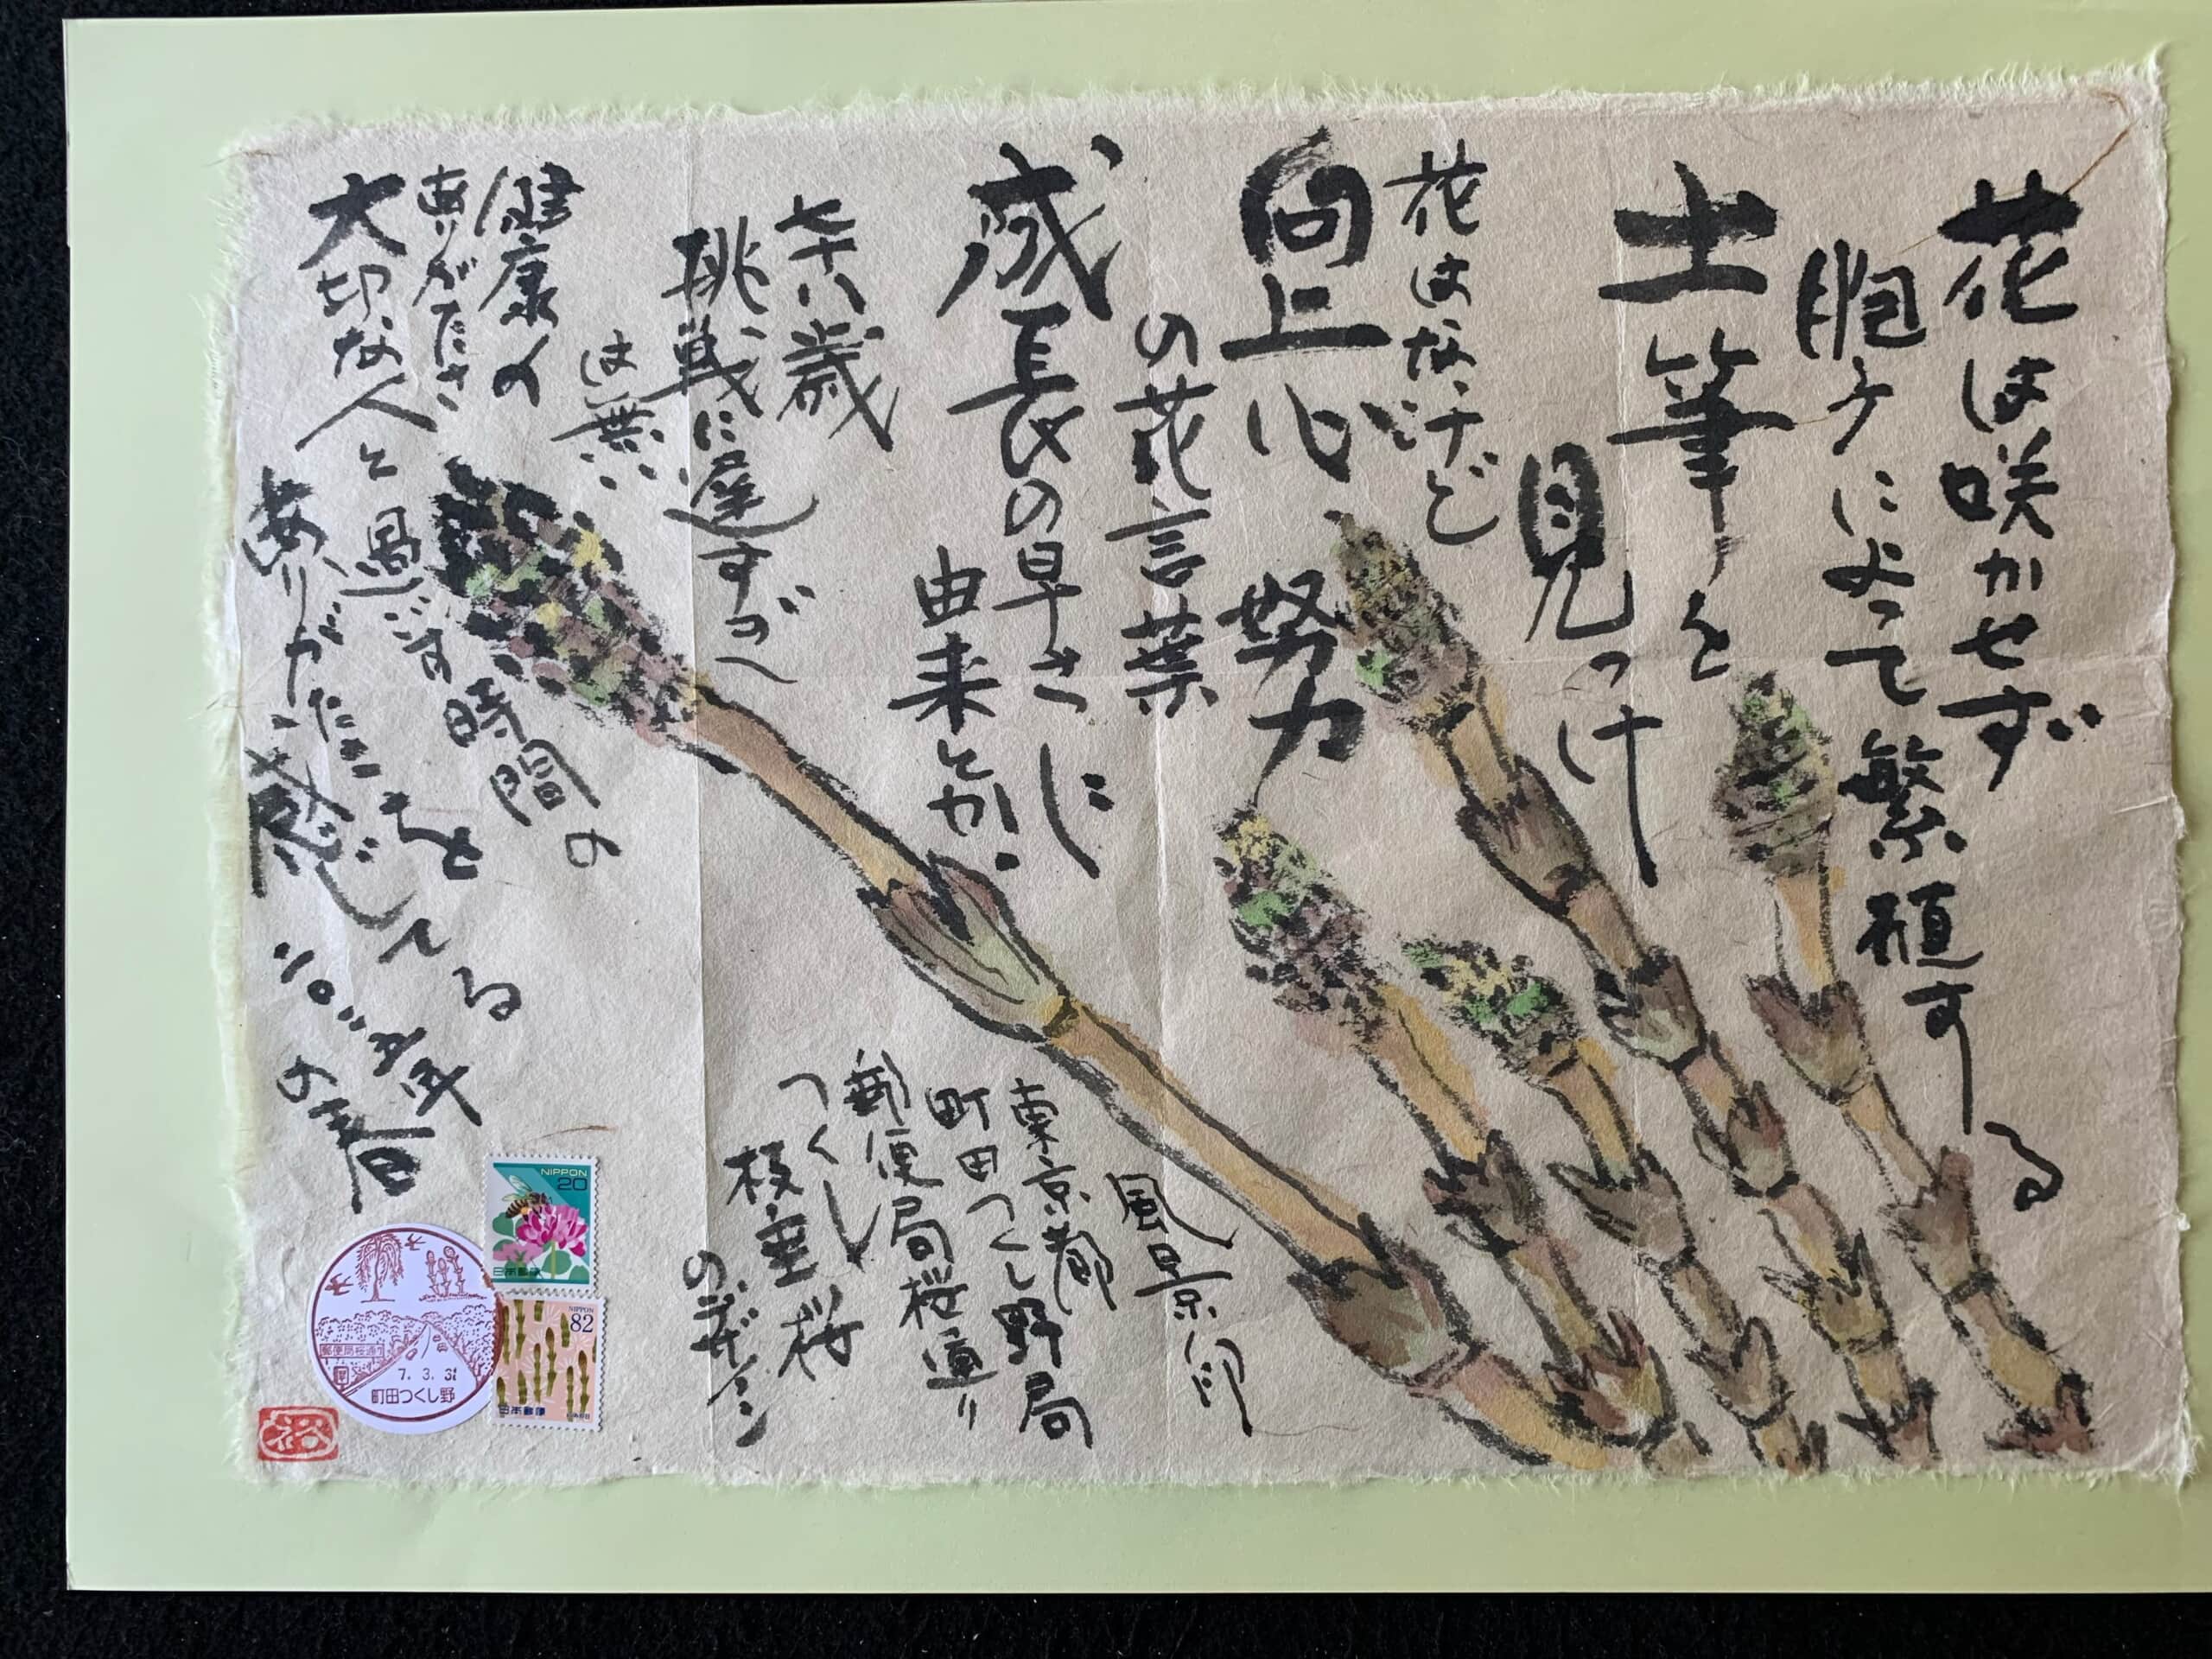 花は咲かせず
胞子によって繁殖する
土筆を
見つけ
花はないけど
向上心 努力
の花言葉
成長の早さに
由来とか
七十八歳
挑戦に遅すぎ
は無い
健康の
ありがたさ
大切な人と過ごす時間の
ありがたさを
感じてる
二〇二五年
の春
風景印
東京都
町田つくし野局
郵便局桜通り
つくし
枝垂桜
のデザイン
NIPPON
20
日本郵便
NIPPON
82
日本郵便
郵便局桜通り
7.3.31
町田つくし野
裕